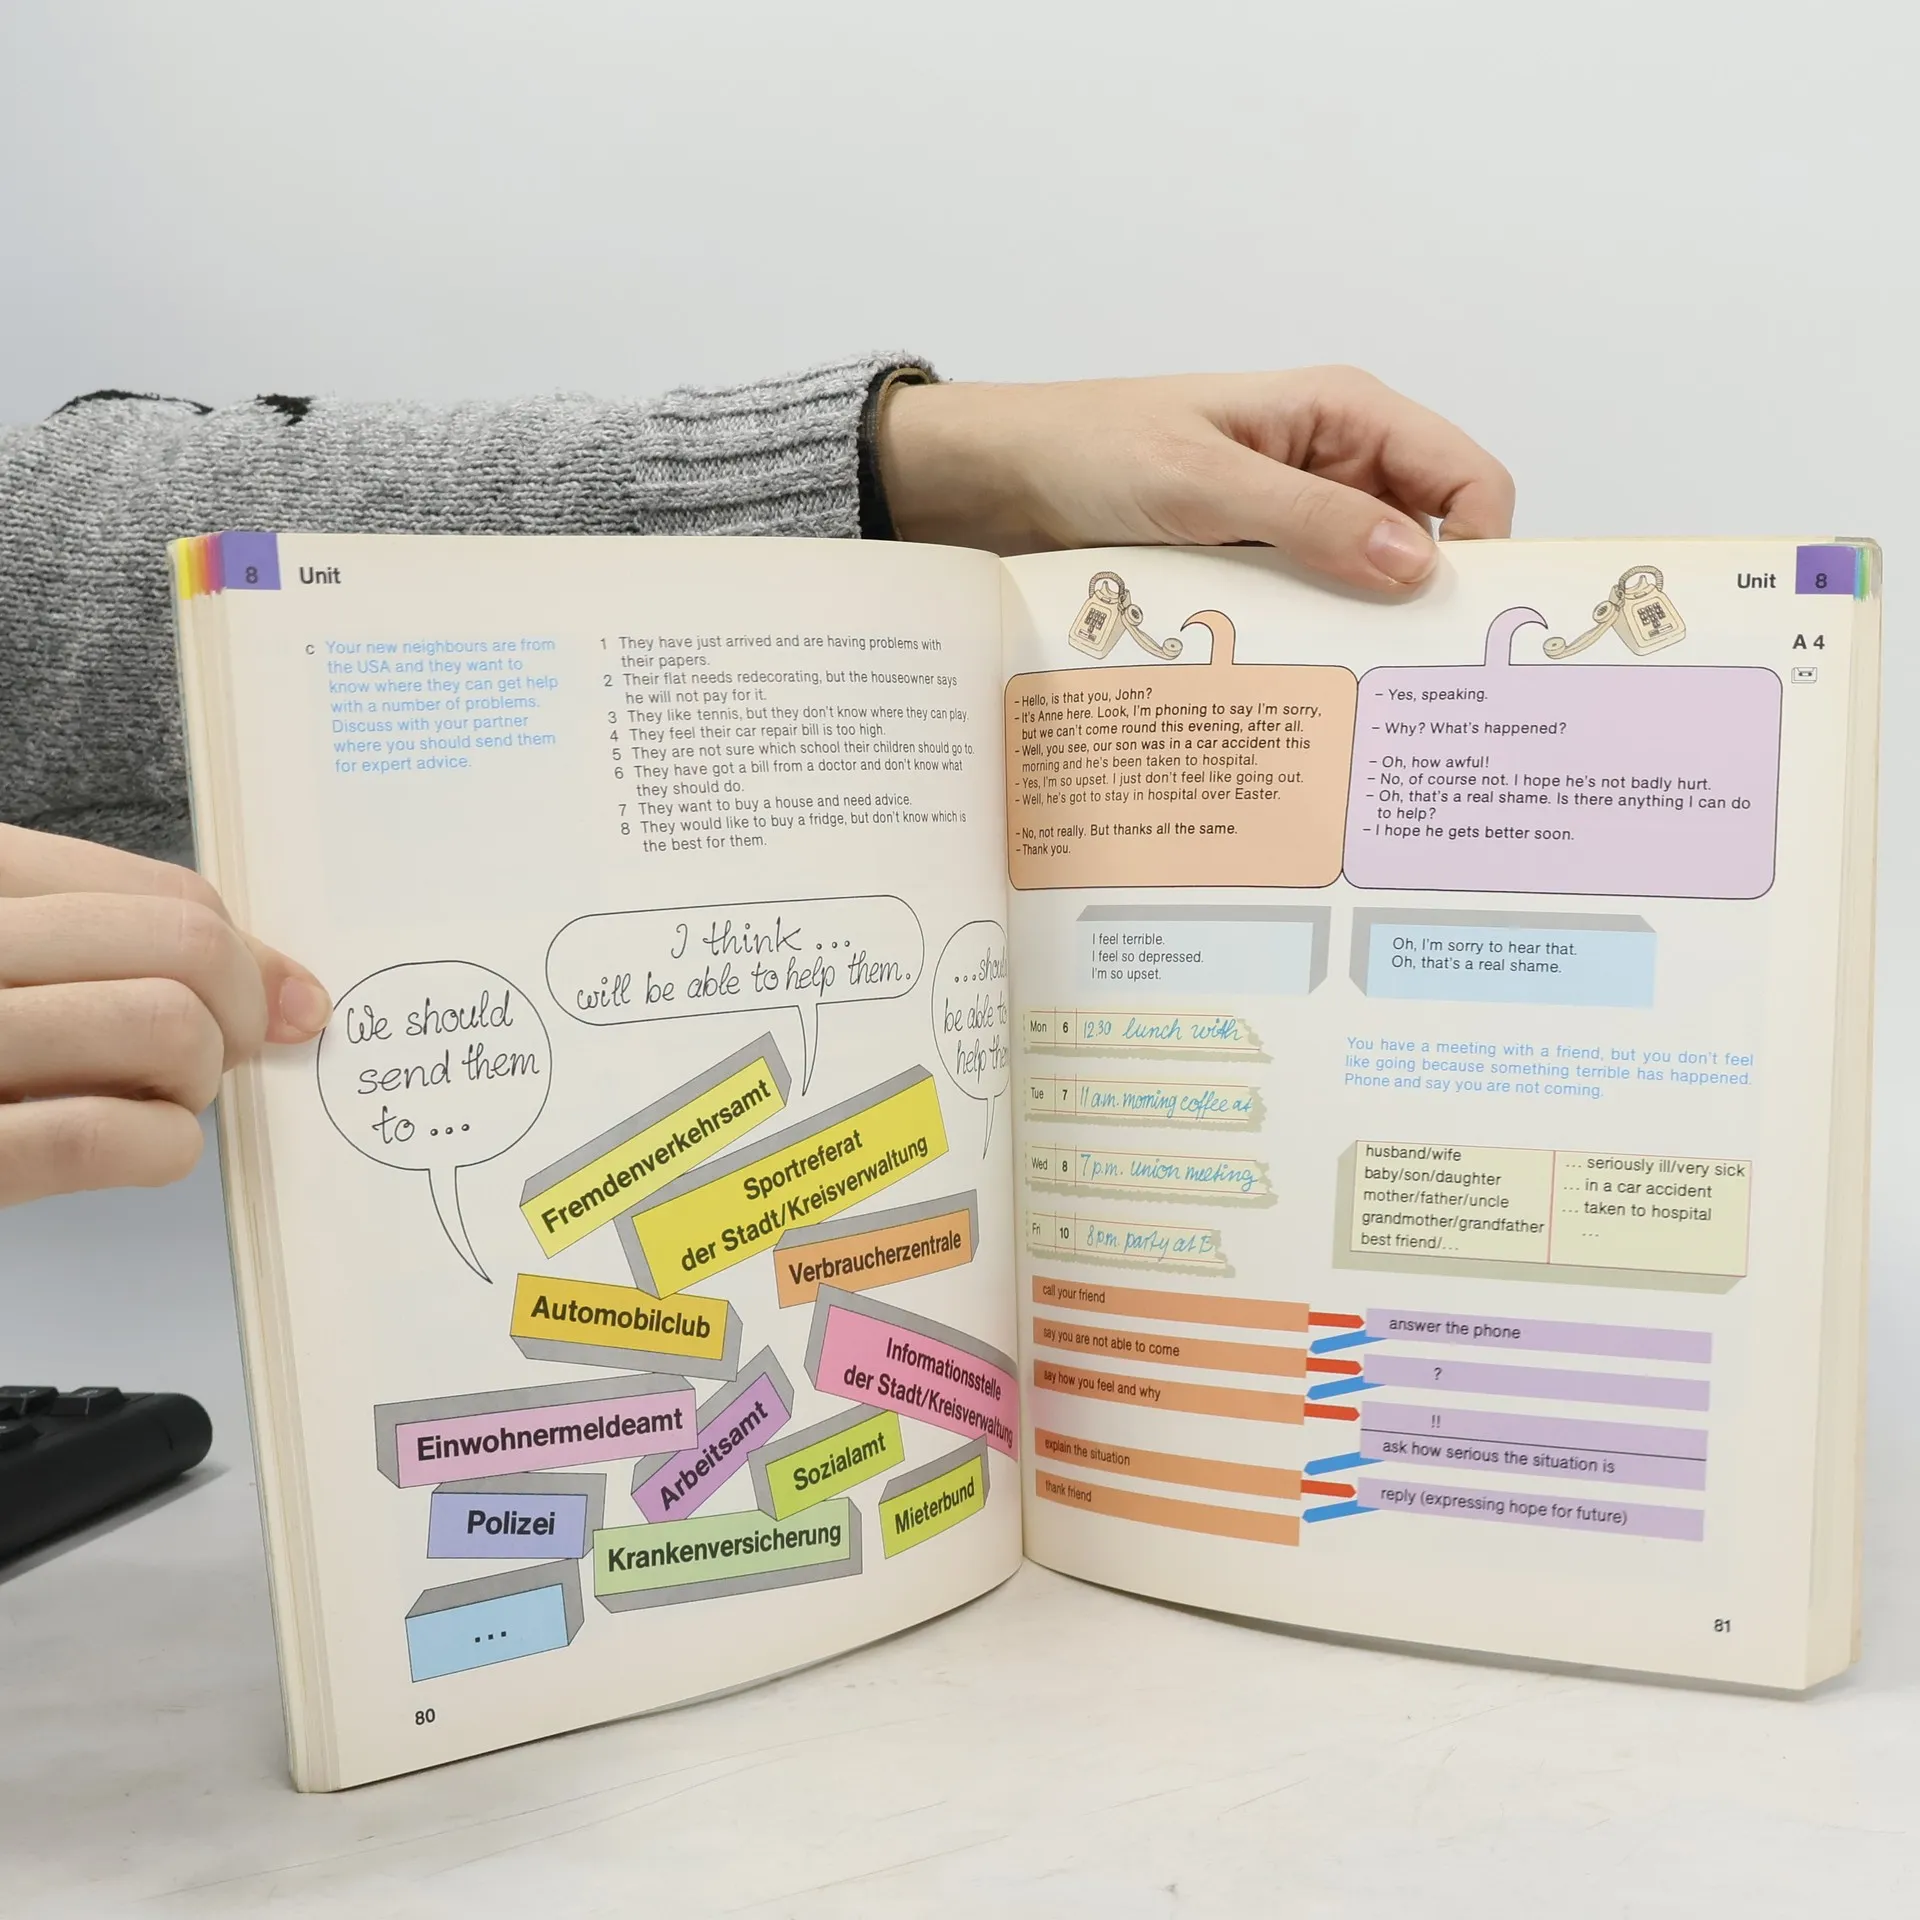 8 Unit
c Your new neighbours are from
the USA and they want to
know where they can get help
with a number of problems.
Discuss with your partner
where you should send them
for expert advice.
1 They have just arrived and are having problems with
their papers.
2 Their flat needs redecorating, but the houseowner says
he will not pay for it.
3 They like tennis, but they don't know where they can play.
4 They feel their car repair bill is too high.
5 They are not sure which school their children should go to.
6 They have got a bill from a doctor and don't know what
they should do.
7 They want to buy a house and need advice.
8 They would like to buy a fridge, but don't know which is
the best for them.
We should
send them
to ...
I think ...
will be able to help them.
...shoul
be able to
help the
Fremdenverkehrsamt
Sportreferat
der Stadt/Kreisverwaltung
Verbraucherzentrale
Automobilclub
Informationsstelle
der Stadt/Kreisverwaltung
Einwohnermeldeamt
Arbeitsamt
Sozialamt
Mieterbund
Polizei
Krankenversicherung
...
80
Unit 8
A 4
- Hello, is that you, John?
- It's Anne here. Look, I'm phoning to say I'm sorry,
but we can't come round this evening, after all.
- Well, you see, our son was in a car accident this
morning and he's been taken to hospital.
- Yes, I'm so upset. I just don't feel like going out.
- Well, he's got to stay in hospital over Easter.
- No, not really. But thanks all the same.
- Thank you.
- Yes, speaking.
- Why? What's happened?
- Oh, how awful!
- No, of course not. I hope he's not badly hurt.
- Oh, that's a real shame. Is there anything I can do
to help?
- I hope he gets better soon.
I feel terrible.
I feel so depressed.
I'm so upset.
Oh, I'm sorry to hear that.
Oh, that's a real shame.
Mon 6 12.30 lunch with
Tue 7 11 a.m. morning coffee at
Wed 8 7 p.m. union meeting
Fri 10 8pm party at B
You have a meeting with a friend, but you don't feel
like going because something terrible has happened.
Phone and say you are not coming.
husband/wife
baby/son/daughter
mother/father/uncle
grandmother/grandfather
best friend/...
... seriously ill/very sick
... in a car accident
... taken to hospital
...
call your friend
say you are not able to come
say how you feel and why
explain the situation
thank friend
answer the phone
?
!!
ask how serious the situation is
reply (expressing hope for future)
81